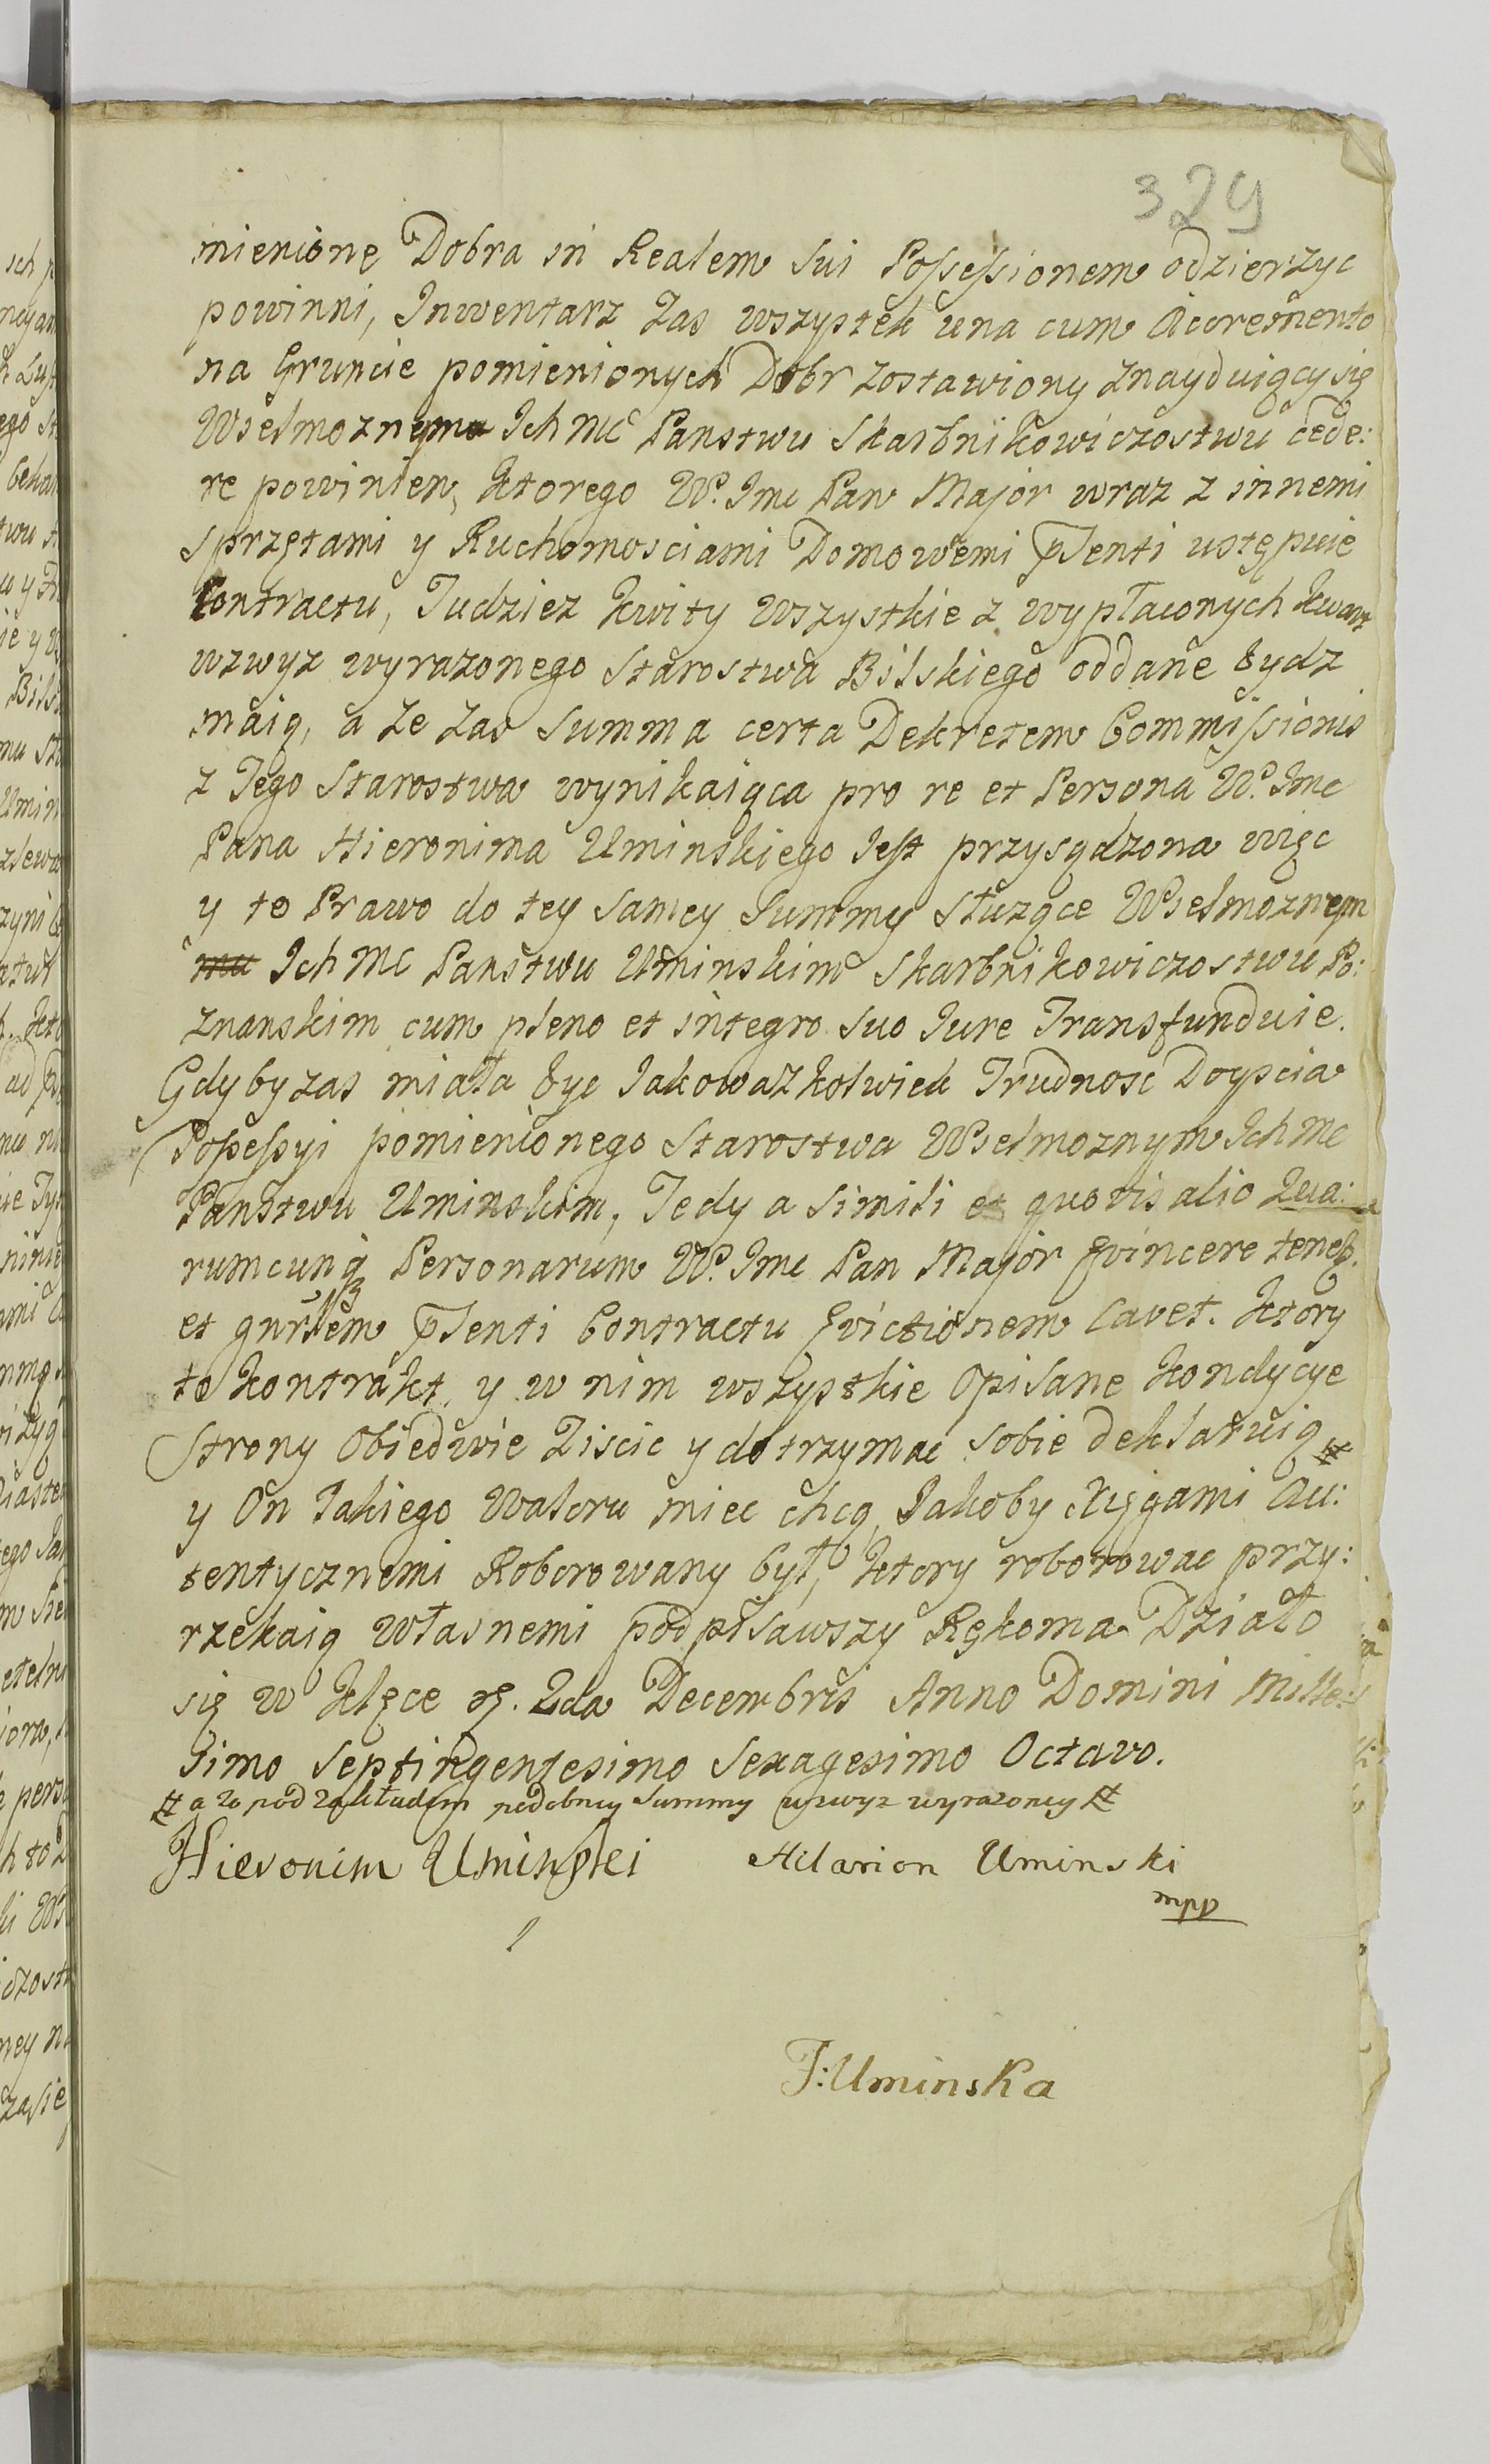 329
mienionę Dobra in Realem sui Possessionem odzierzyc
powinni, Inwentarz zas wszystek una cum Accremento
na Gruncie pomienionych Dobr zostawiony znayduiący się
Wielmoznym Ich Mć Panstwu Skarbnikowiczostwu cede:
re powinien, Ktorego W. Jmc Pan Major wraz z innemi
sprzętami y Ruchomosciami Domowemi pņti ustępuie
Contractu, Tudziez kwity wszystkie z wypłaconych kwart
wzwyz wyrazonego Starostwa Bilskiego oddane bydz
maią, a ze zas Summa certa Dekretem Commissionis
z Tego Starostwa wynikaiąca pro re et Persona W. Jmc
Pana Hieronima Uminskiego Jest przysądzona więc
y to Prawo do tey samey Summy słuzące Wielmoznym
Ich Mć Panstwu Uminskim Skarbnikowiczostwu Po:
znanskim cum pleno et integro suo Jure Transfunduie.
Gdyby zas miała byc Jakowazkolwiek Trudnosć Doyscia
Possessyi pomienionego Starostwa Wielmoznym Ich Mc
Panstwu Uminskim, Tedy a simili et quovis alio Qua:
rumcunq Personarum W. Jmc Pan Major Evincere teneb.
et gnrlem pņti Contractu Evictionem cavet. Ktory
to kontrakt y w nim wszystkie opisane kondycye
Strony Obiedwie Ziscic y dotrzymac sobie deklaruią #
y On Takiego Waloru miec chcą, Jakoby Xięgami Au:
tentycznemi Roborowany był, ktory roborowac przy:
rzekaią własnemi podpisawszy Rękoma Działo
się w Klęce D. 2da Decembris Anno Domini Mille:
simo Septingentesimo Sexagesimo Octavo.
# a to pod zakładem podobney summy wzwyz wyrazoney #
Hieronim Uminski Hilarion Uminski
mpp
T: Uminska